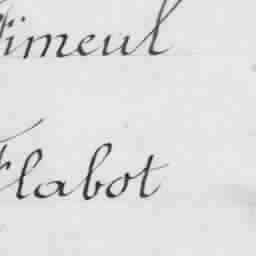 Timeul
Flabot